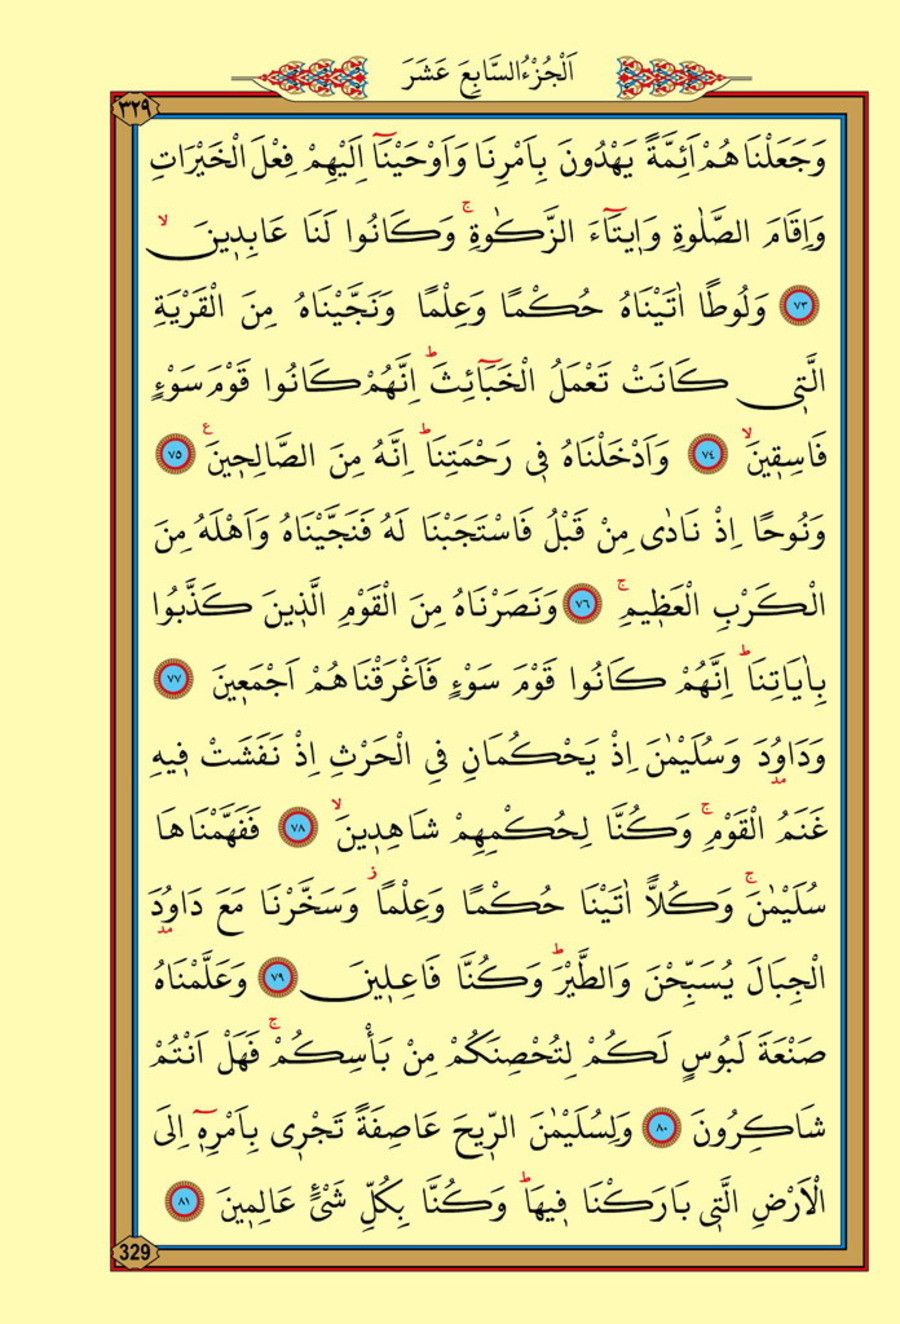 اَلْجُزْءُ السَّابِعَ عَشَرَ
٣٢٩
وَجَعَلْنَاهُمْ اَئِمَّةً يَهْدُونَ بِاَمْرِنَا وَاَوْحَيْنَٓا اِلَيْهِمْ فِعْلَ الْخَيْرَاتِ
وَاِقَامَ الصَّلٰوةِ وَا۪يتَٓاءَ الزَّكٰوةِۚ وَكَانُوا لَنَا عَابِد۪ينَۙ
﴿٧٣﴾ وَلُوطًا اٰتَيْنَاهُ حُكْمًا وَعِلْمًا وَنَجَّيْنَاهُ مِنَ الْقَرْيَةِ
الَّت۪ي كَانَتْ تَعْمَلُ الْخَبَٓائِثَۜ اِنَّهُمْ كَانُوا قَوْمَ سَوْءٍ
فَاسِق۪ينَۙ ﴿٧٤﴾ وَاَدْخَلْنَاهُ ف۪ي رَحْمَتِنَاۜ اِنَّهُ مِنَ الصَّالِح۪ينَ۟ ﴿٧٥﴾
وَنُوحًا اِذْ نَادٰى مِنْ قَبْلُ فَاسْتَجَبْنَا لَهُ فَنَجَّيْنَاهُ وَاَهْلَهُ مِنَ
الْكَرْبِ الْعَظ۪يمِۚ ﴿٧٦﴾ وَنَصَرْنَاهُ مِنَ الْقَوْمِ الَّذ۪ينَ كَذَّبُوا
بِاٰيَاتِنَاۜ اِنَّهُمْ كَانُوا قَوْمَ سَوْءٍ فَاَغْرَقْنَاهُمْ اَجْمَع۪ينَ ﴿٧٧﴾
وَدَاوُ۫دَ وَسُلَيْمٰنَ اِذْ يَحْكُمَانِ فِي الْحَرْثِ اِذْ نَفَشَتْ ف۪يهِ
غَنَمُ الْقَوْمِۚ وَكُنَّا لِحُكْمِهِمْ شَاهِد۪ينَۙ ﴿٧٨﴾ فَفَهَّمْنَاهَا
سُلَيْمٰنَۚ وَكُلًّا اٰتَيْنَا حُكْمًا وَعِلْمًاۘ وَسَخَّرْنَا مَعَ دَاوُ۫دَ
الْجِبَالَ يُسَبِّحْنَ وَالطَّيْرَۜ وَكُنَّا فَاعِل۪ينَ ﴿٧٩﴾ وَعَلَّمْنَاهُ
صَنْعَةَ لَبُوسٍ لَكُمْ لِتُحْصِنَكُمْ مِنْ بَأْسِكُمْۚ فَهَلْ اَنْتُمْ
شَاكِرُونَ ﴿٨٠﴾ وَلِسُلَيْمٰنَ الرّ۪يحَ عَاصِفَةً تَجْر۪ي بِاَمْرِه۪ٓ اِلَى
الْاَرْضِ الَّت۪ي بَارَكْنَا ف۪يهَاۜ وَكُنَّا بِكُلِّ شَيْءٍ عَالِم۪ينَ ﴿٨١﴾
329